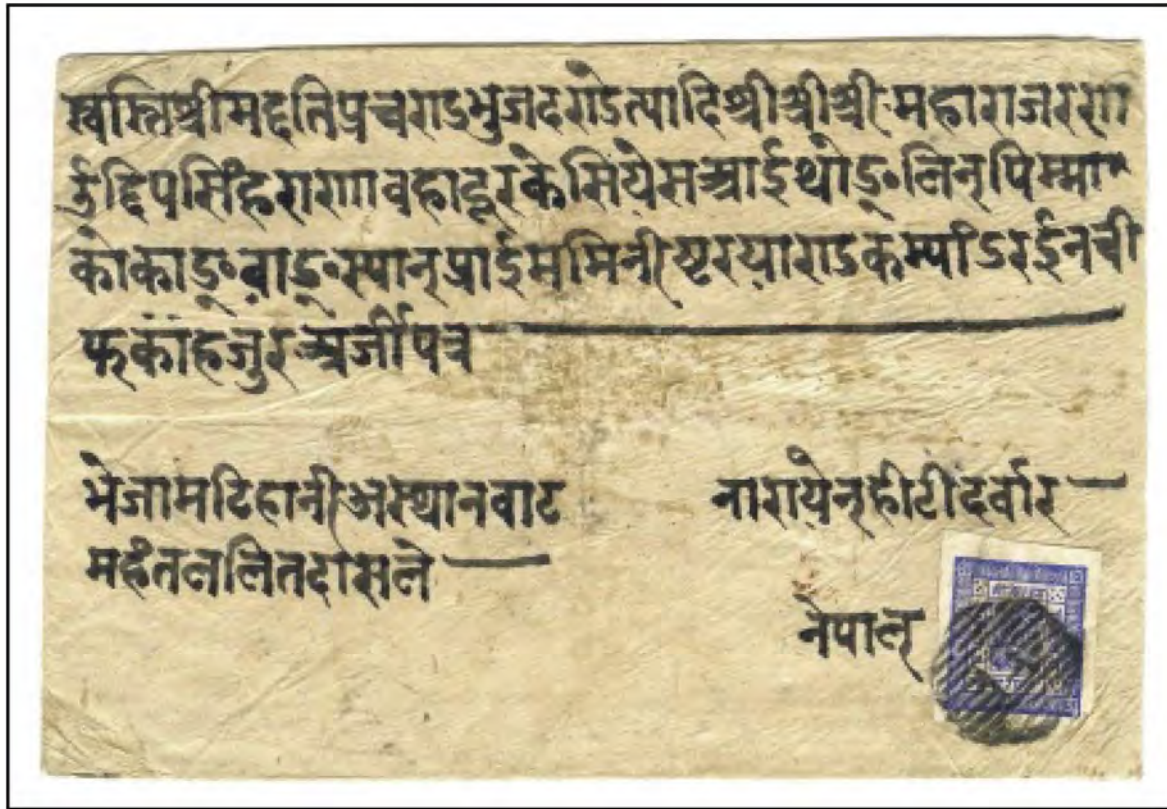 स्वस्तिश्रीमद्दतिप्रचराडभुजदराडेत्यादिश्रीश्रीश्रीमहाराजररगा
र्उद्दिपसिंहरारगावहादूरकेसियेसआईथोङ्लिन्पिम्मा
कोकाङ्वाङ्स्यान्प्राईममिनीष्टरयाराडकम्यांडरईनची
फ्काहजुरअर्जीपत्र
भेजामटिहानीअस्थानवाट
महंतललितदासले
नारायेन्हीटीदर्वार
नेपाल्